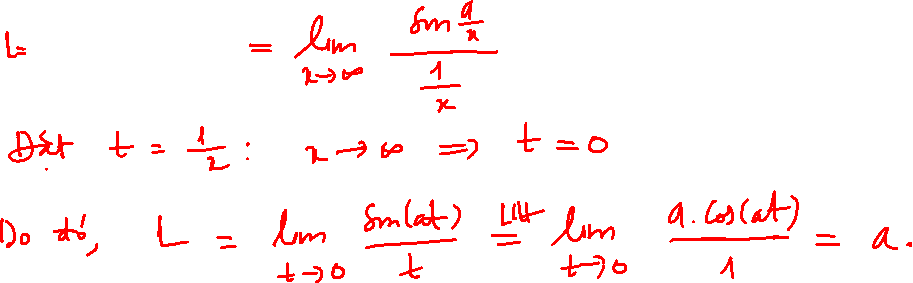 L= = lim x→∞ (sin a/x)/(1/x)
Đặt t = 1/x : x → ∞ => t = 0
Do đó, L = lim t→0 sin(at)/t =(LH) lim t→0 a.cos(at)/1 = a.